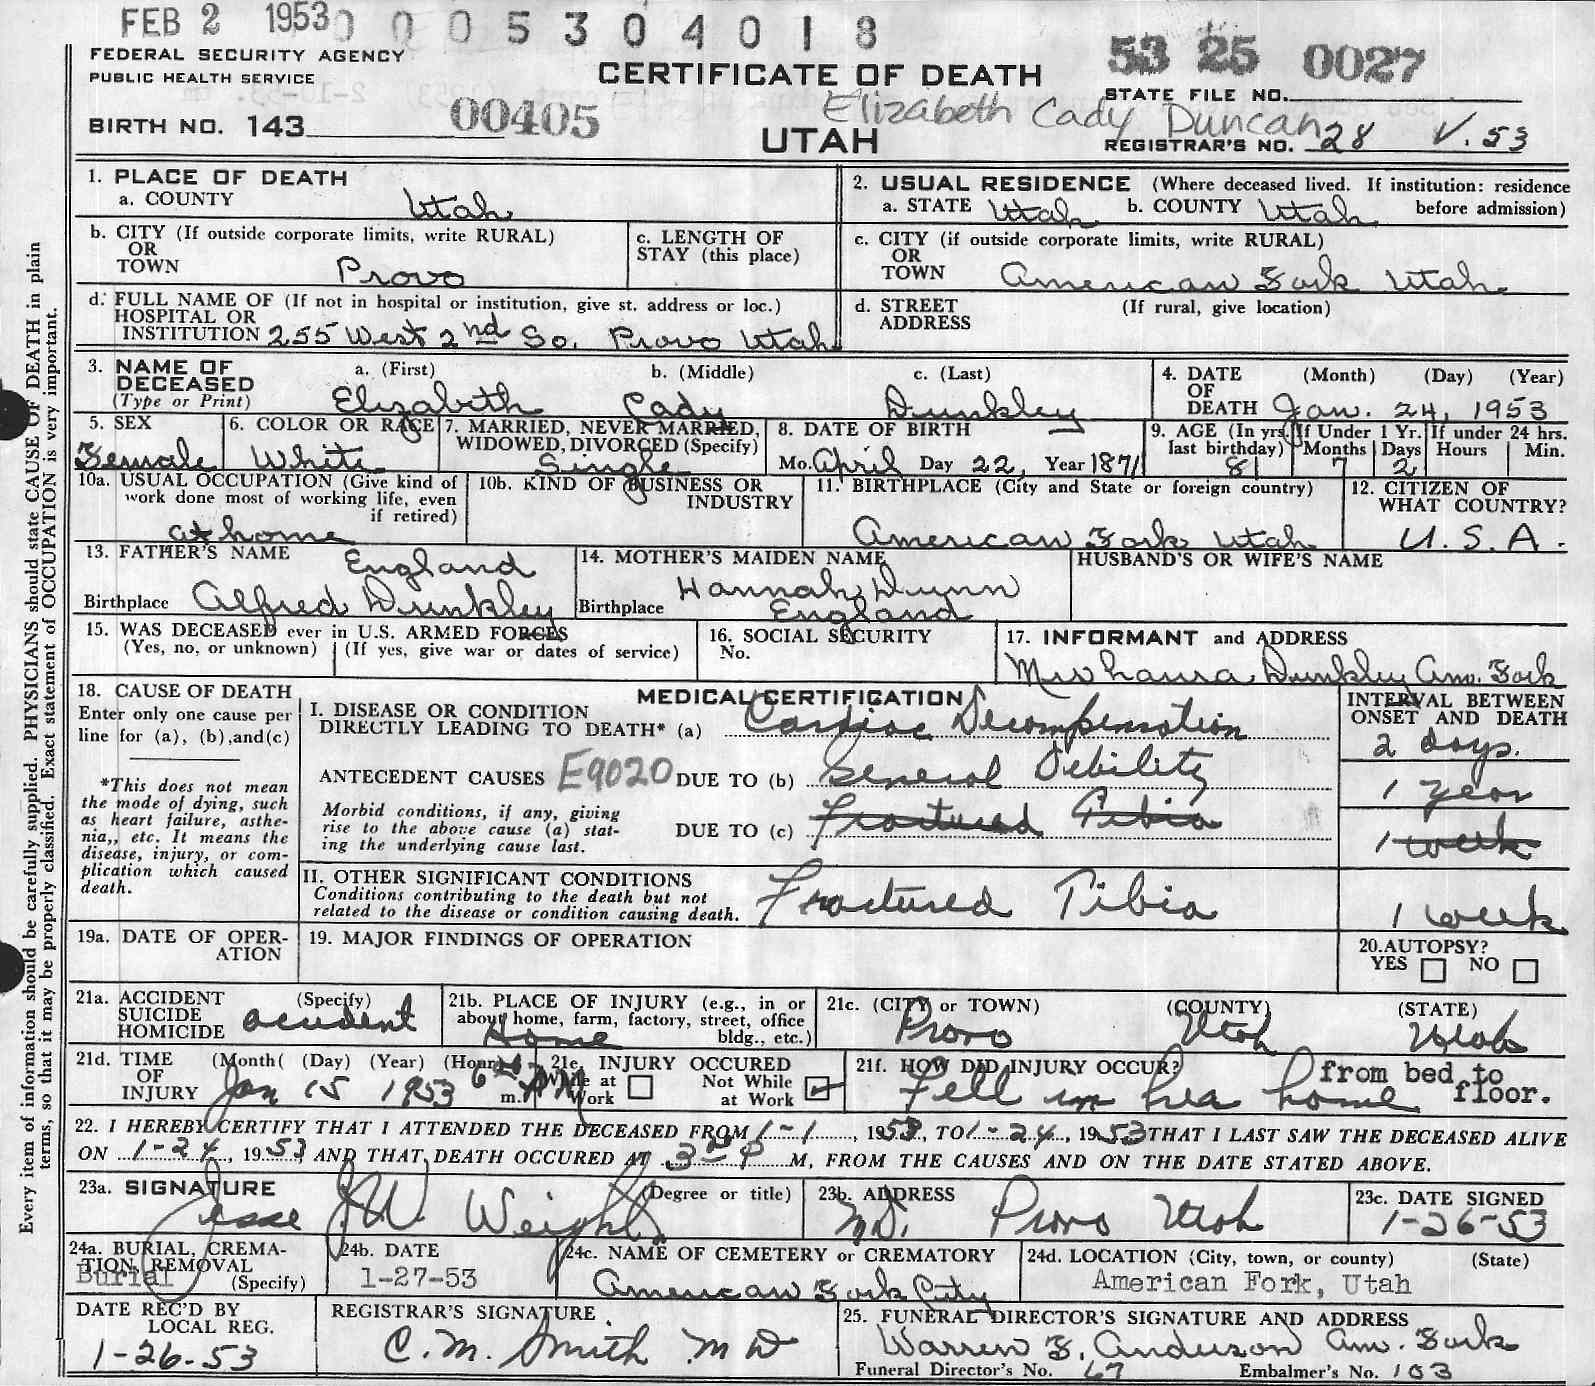 FEB 2 1953 0 0 0 5 3 0 4 0 1 8
FEDERAL SECURITY AGENCY
PUBLIC HEALTH SERVICE
CERTIFICATE OF DEATH
53 25 0027
STATE FILE NO.
BIRTH NO. 143 00405
Elizabeth Cady Duncan
UTAH
REGISTRAR'S NO. 28 V. 53
1. PLACE OF DEATH
a. COUNTY Utah
2. USUAL RESIDENCE (Where deceased lived. If institution: residence before admission)
a. STATE Utah b. COUNTY Utah
b. CITY (If outside corporate limits, write RURAL)
OR
TOWN Provo
c. LENGTH OF
STAY (this place)
c. CITY (if outside corporate limits, write RURAL)
OR
TOWN American Fork Utah
d. FULL NAME OF (If not in hospital or institution, give st. address or loc.)
HOSPITAL OR
INSTITUTION 255 West 2nd So. Provo Utah
d. STREET (If rural, give location)
ADDRESS
3. NAME OF DECEASED
(Type or Print)
a. (First) b. (Middle) c. (Last)
Elizabeth Cady Dunkley
4. DATE (Month) (Day) (Year)
OF
DEATH Jan. 24, 1953
5. SEX
Female
6. COLOR OR RACE
White
7. MARRIED, NEVER MARRIED,
WIDOWED, DIVORCED (Specify)
Single
8. DATE OF BIRTH
Mo. April Day 22, Year 1871
9. AGE (In yrs. last birthday) 81
If Under 1 Yr. Months 7 Days 2
If under 24 hrs. Hours Min.
10a. USUAL OCCUPATION (Give kind of
work done most of working life, even
if retired)
at home
10b. KIND OF BUSINESS OR
INDUSTRY
11. BIRTHPLACE (City and State or foreign country)
American Fork Utah
12. CITIZEN OF
WHAT COUNTRY?
U.S.A.
13. FATHER'S NAME England
Birthplace Alfred Dunkley
14. MOTHER'S MAIDEN NAME
Hannah Dunn
Birthplace England
HUSBAND'S OR WIFE'S NAME
15. WAS DECEASED ever in U.S. ARMED FORCES
(Yes, no, or unknown) (If yes, give war or dates of service)
16. SOCIAL SECURITY
No.
17. INFORMANT and ADDRESS
Dunkley Am. Fork
18. CAUSE OF DEATH
Enter only one cause per
line for (a), (b), and (c)
*This does not mean
the mode of dying, such
as heart failure, asthe-
nia,, etc. It means the
disease, injury, or com-
plication which caused
death.
MEDICAL CERTIFICATION
INTERVAL BETWEEN
ONSET AND DEATH
I. DISEASE OR CONDITION
DIRECTLY LEADING TO DEATH* (a) Cardiac Decompensation 2 days.
ANTECEDENT CAUSES E9020 DUE TO (b) General Debility 1 year
Morbid conditions, if any, giving
rise to the above cause (a) stat-
ing the underlying cause last.
DUE TO (c) Fractured Tibia 1 week
II. OTHER SIGNIFICANT CONDITIONS
Conditions contributing to the death but not
related to the disease or condition causing death.
Fractured Tibia 1 week
19a. DATE OF OPER-
ATION
19. MAJOR FINDINGS OF OPERATION
20. AUTOPSY?
YES NO
21a. ACCIDENT (Specify)
SUICIDE
HOMICIDE accident
21b. PLACE OF INJURY (e.g., in or
about home, farm, factory, street, office
bldg., etc.)
Home
21c. (CITY or TOWN) (COUNTY) (STATE)
Provo Utah Utah
21d. TIME (Month( (Day) (Year) (Hour)
OF
INJURY Jan 15 1953 m. AM
21e. INJURY OCCURED
While at Work
Not While at Work
21f. HOW DID INJURY OCCUR?
Fell in her home from bed to floor.
22. I HEREBY CERTIFY THAT I ATTENDED THE DECEASED FROM 1-1, 1953, TO 1-24, 1953 THAT I LAST SAW THE DECEASED ALIVE
ON 1-24, 1953, AND THAT DEATH OCCURED AT 3 P M, FROM THE CAUSES AND ON THE DATE STATED ABOVE.
23a. SIGNATURE (Degree or title)
Jesse J.W. Weight
23b. ADDRESS
M.D. Provo Utah
23c. DATE SIGNED
1-26-53
24a. BURIAL, CREMA-
TION, REMOVAL
Burial (Specify)
24b. DATE
1-27-53
24c. NAME OF CEMETERY or CREMATORY
American Fork City
24d. LOCATION (City, town, or county) (State)
American Fork, Utah
DATE REC'D BY
LOCAL REG.
1-26-53
REGISTRAR'S SIGNATURE
C.M. Smith MD
25. FUNERAL DIRECTOR'S SIGNATURE AND ADDRESS
Warren F. Anderson Am. Fork
Funeral Director's No. 67 Embalmer's No. 103
Every item of information should be carefully supplied. PHYSICIANS should state CAUSE OF DEATH in plain
terms, so that it may be properly classified. Exact statement of OCCUPATION is very important.